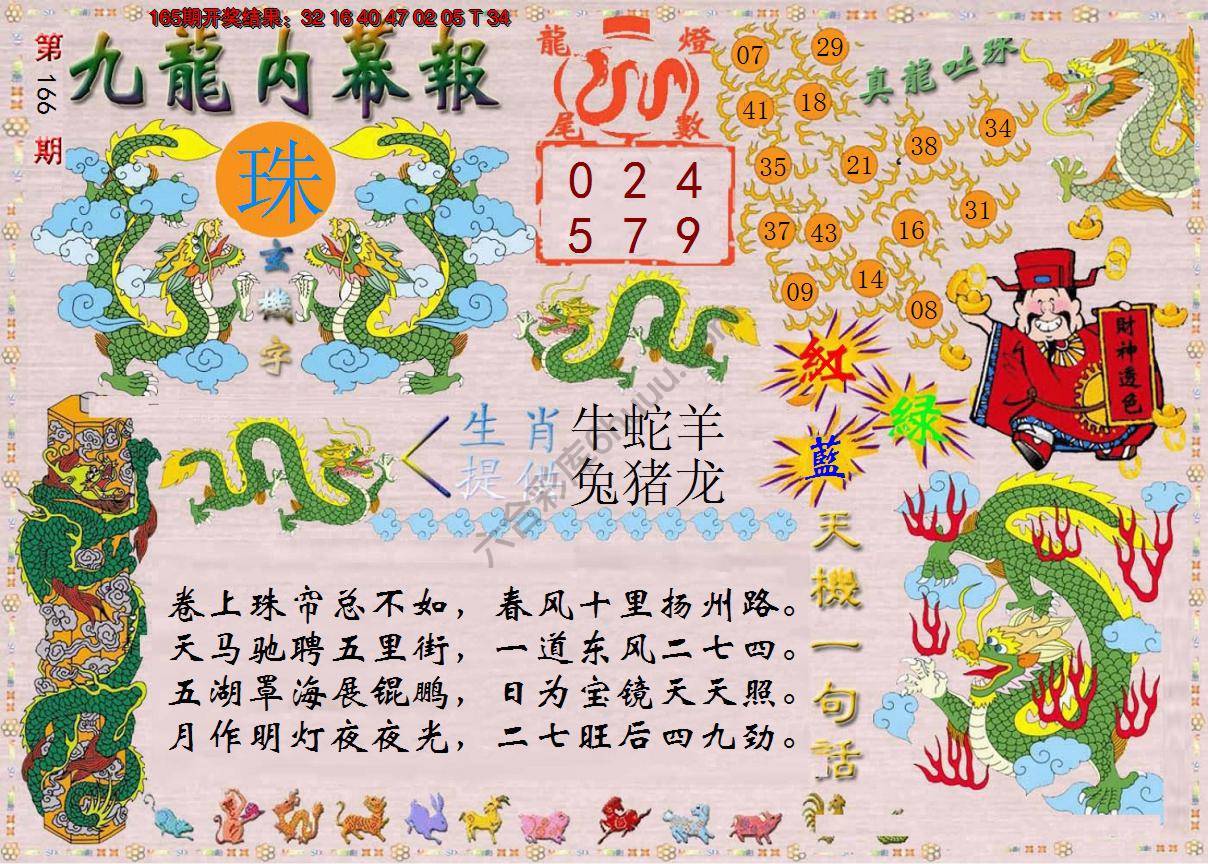 165期开奖结果：32 16 40 47 02 05 T 34
第166期
九龍内幕報
珠
玄機字
龍燈
尾數
0 2 4
5 7 9
真龍吐珠
07 29
41 18
35 21 38 34
37 43 16 31
09 14 08
財神透色
紅
綠
藍
生肖 牛蛇羊
提供 兔猪龙
六合彩库
天機一句話
卷上珠帘总不如，春风十里扬州路。
天马驰聘五里街，一道东风二七四。
五湖罩海展锟鹏，日为宝镜天天照。
月作明灯夜夜光，二七旺后四九劲。